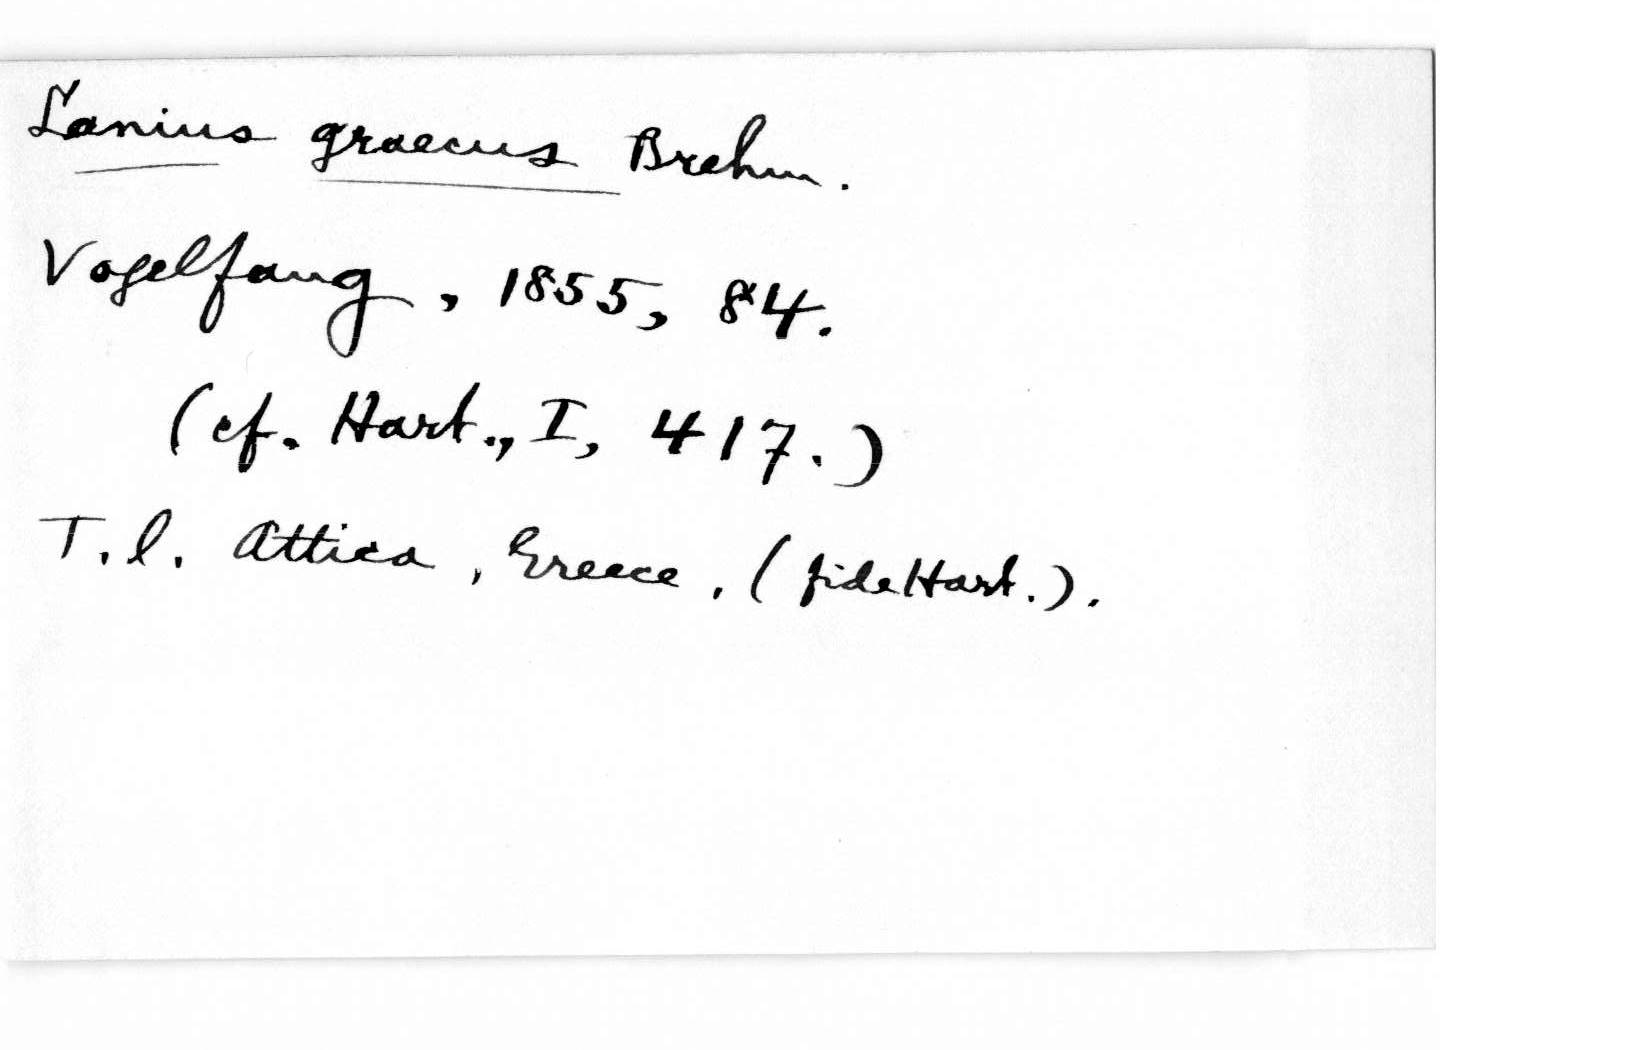 Lanius graecus Brehm.
Vogelfang, 1855, 84.
(cf. Hart., I, 417.)
T.l. Attica, Greece, (fide Hart.).